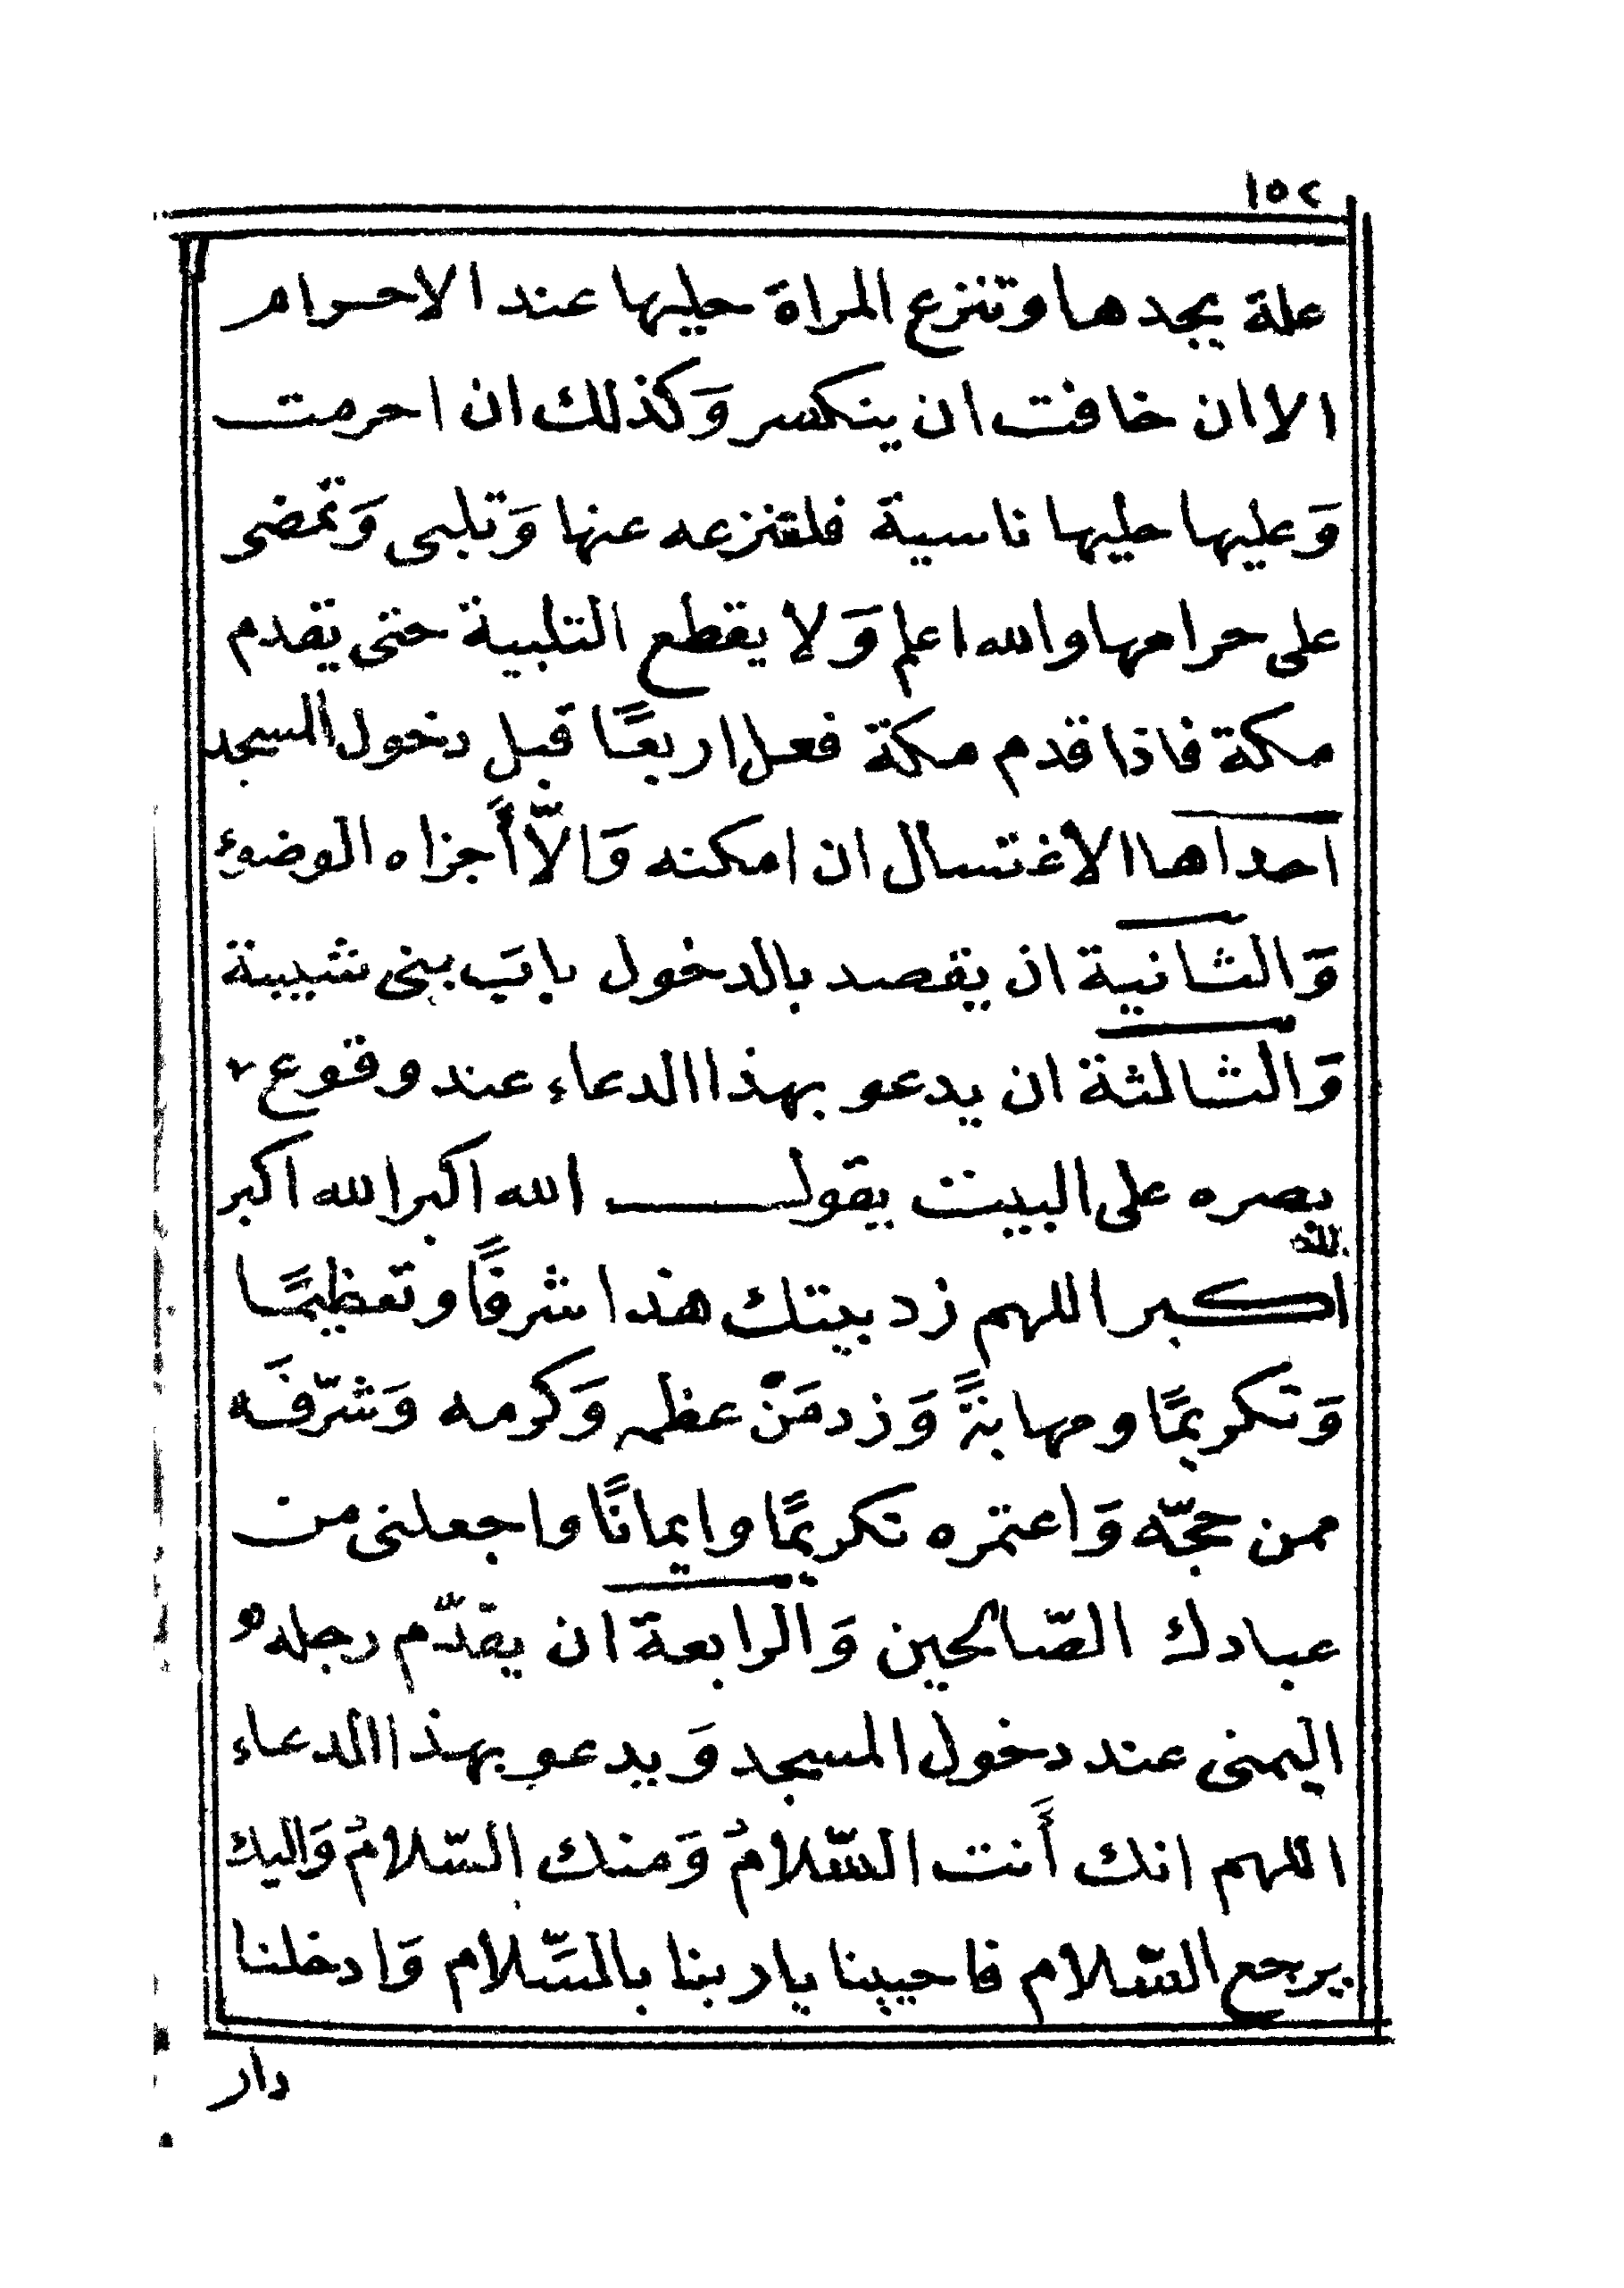 ١٥٢
علة يجدها وتنزع المراة حليها عند الاحرام
الا ان خافت ان ينكسر وَكذلك ان احرمت
وَعليها حليها ناسية فلتنزعه عنها وَتلبى وَتمضى
على حرامها والله اعلم وَلا يقطع التلبية حتى يقدم
مكة فاذا قدم مكة فعل اربعًا قبل دخول المسجد
احداها الاغتسال ان امكنه وَالاّ أجزاه الوضوء
وَالثانية ان يقصد بالدخول باب بنى شيبة
وَالثالثة ان يدعو بهذا الدعاء عند وقوع
بصره على البيت يقول الله اكبر الله اكبر
الله
اكبر اللهم زد بيتك هذا شرفًا وتعظيمًا
وَتكريمًا ومهابةً وَزد مَنْ عظمه وَكرمه وَشرّفَه
ممن حجّه وَاعتمره تكريمًا وايمانًا واجعلنى من
عبادك الصّالحين وَالرابعة ان يقدّم رجله
اليمنى عند دخول المسجد وَيدعو بهذا الدعاء
اللهم انك أَنت السّلامُ وَمنك السّلامُ وَاليك
يرجع السّلام فاحيينا يا ربنا بالسَّلام وَادخلنا
دار